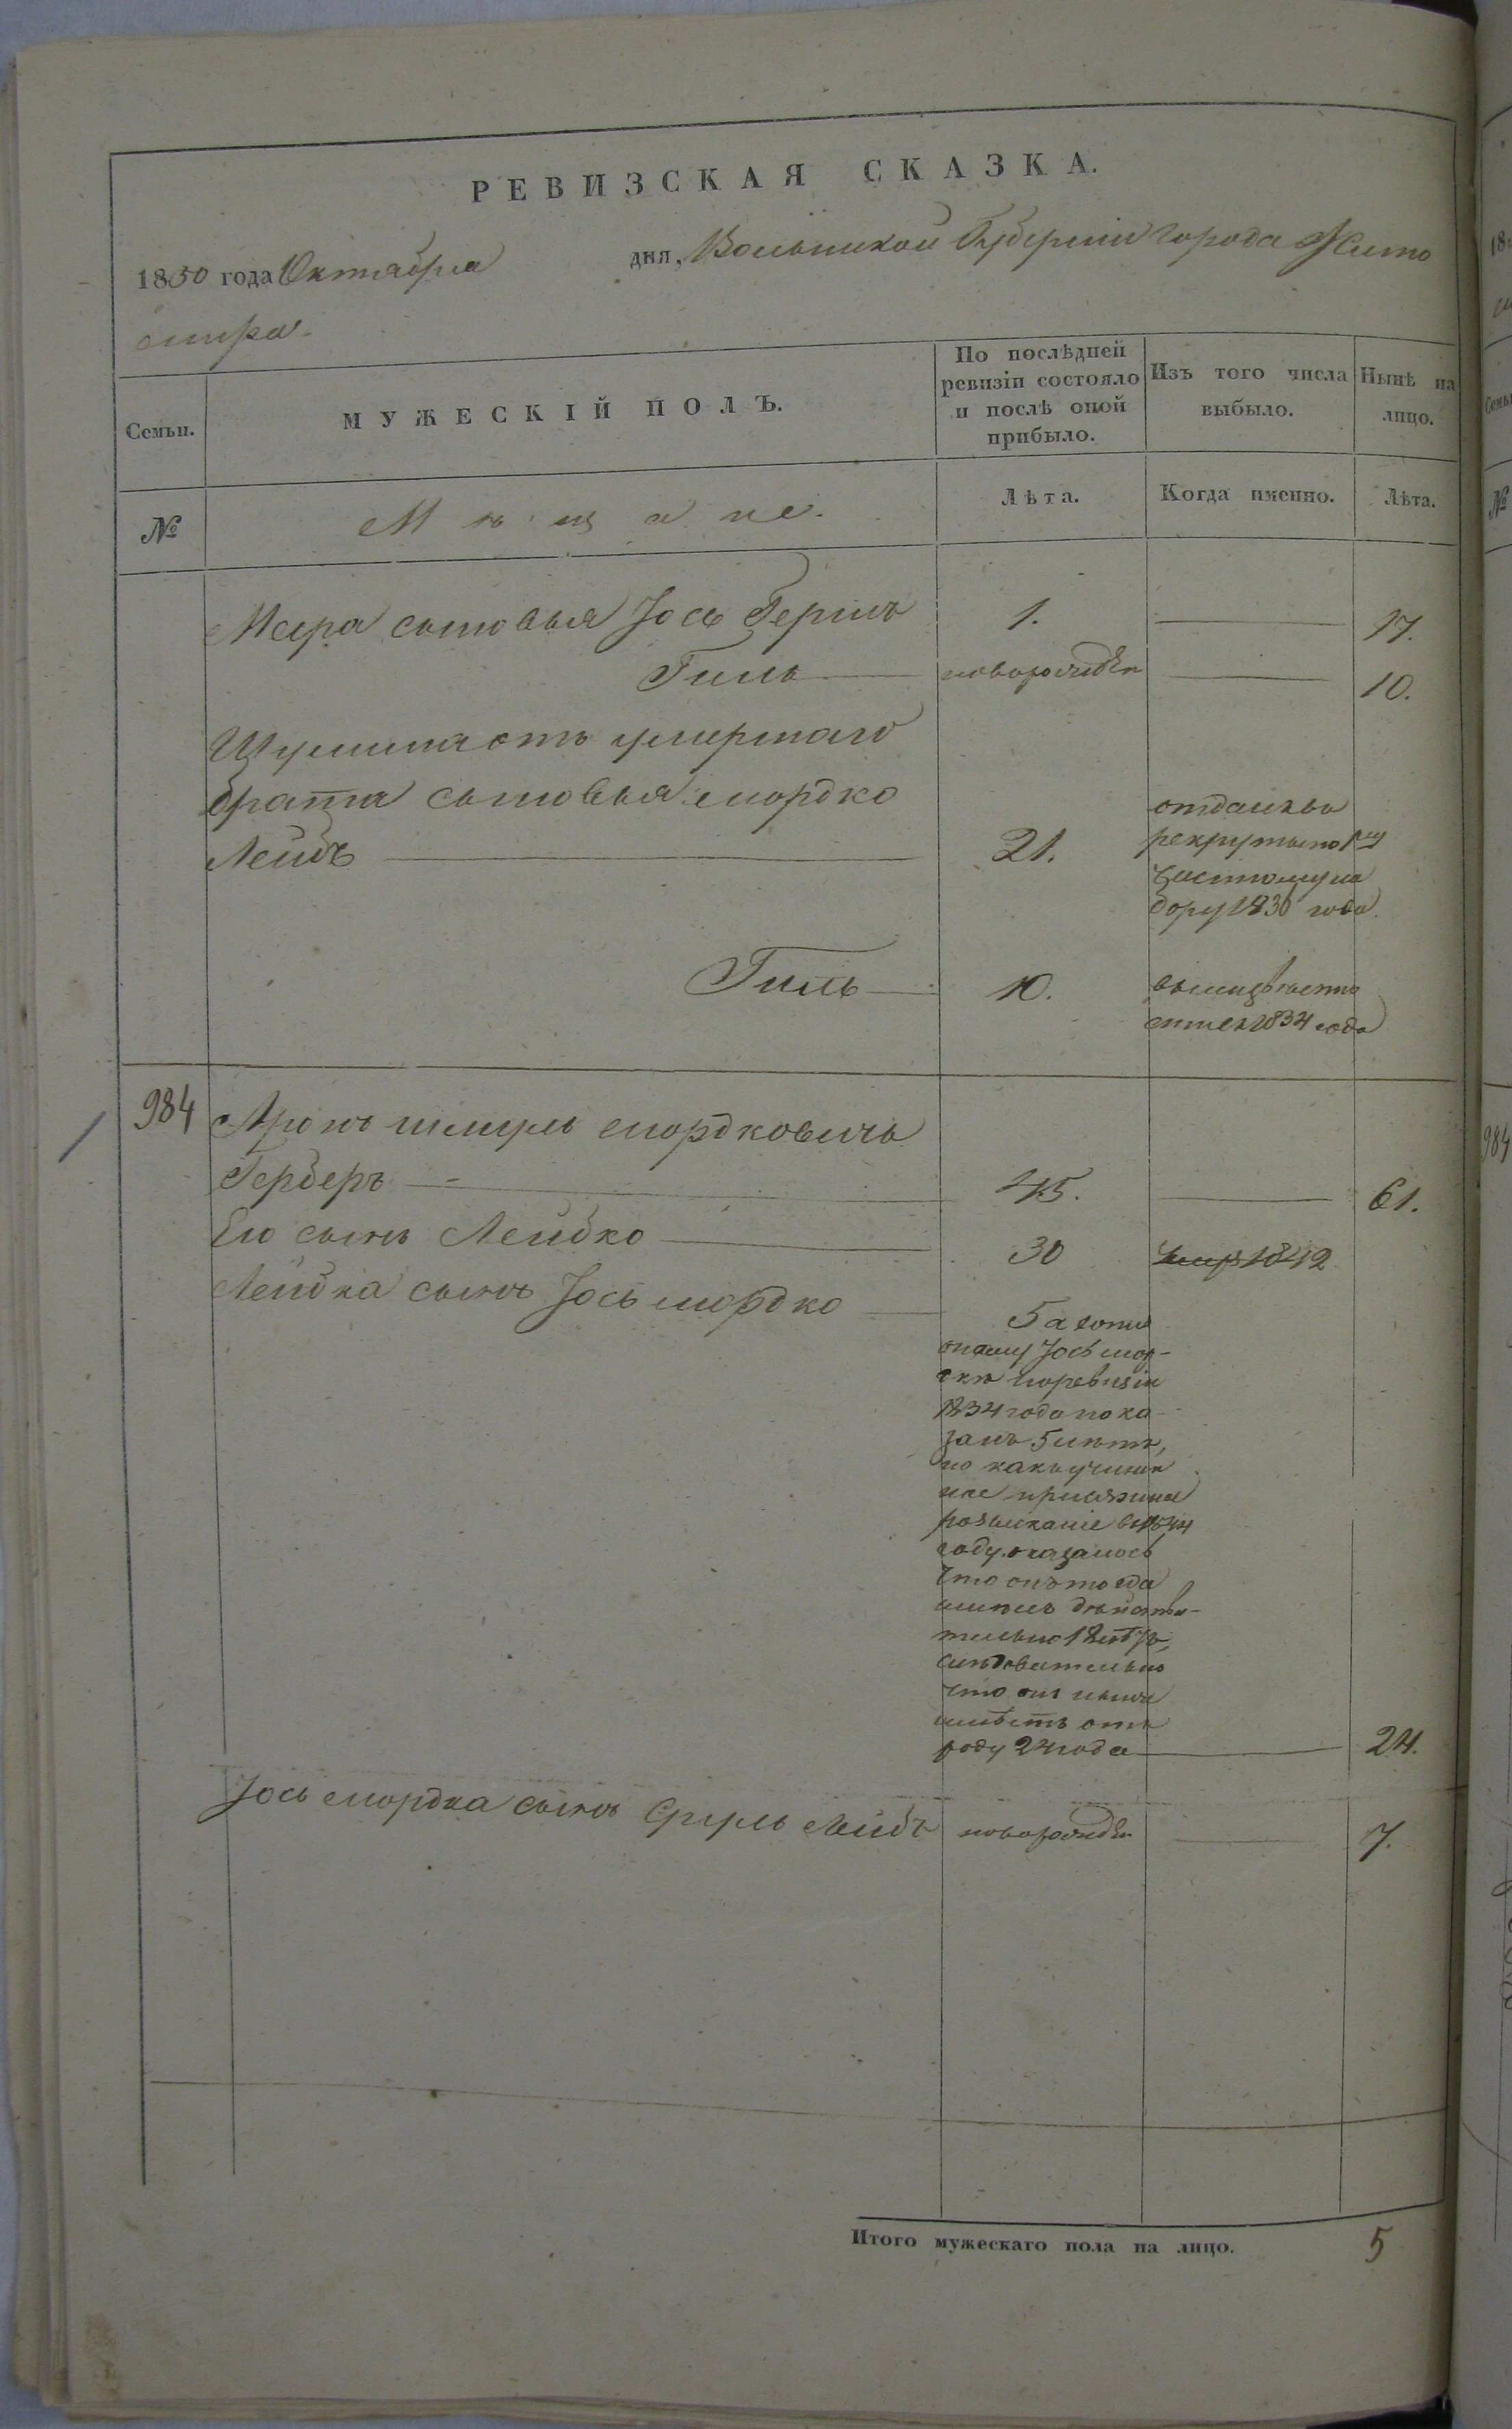 РЕВИЗСКАЯ СКАЗКА.
1850 года Октября дня, Волынской Губерніи города Жито
мира.
Семьи.
МУЖЕСКІЙ ПОЛЪ.
По послѣдней
ревизіи состояло
и послѣ оной
прибыло.
Изъ того числа
выбыло.
Нынѣ на
лицо.
№
Мѣщане.
Лѣта.
Когда именно.
Лѣта.
сыновья Іось Гершъ 1. 17.
Гиль новорожден 10.
умершаго
брата сыновья мордко
Лейбъ 21.
отданъ въ
рекруты по
частному на
бору 1830 года
Гиль 10.
1834 года
984 Аронъ шмуль мордковичъ
Герберъ 45. 61.
Его сынъ Лейбко 30 умер 1842
Лейбка сынъ Іось мордко 5 а хотя
оному Іось мор-
дкѣ по ревизіи
1834 года пока
занъ 5 лѣтъ,
но какъ учинен
ное присяжное
розысканіе въ 1844
году оказалось
что онъ тогда
имѣлъ дѣйстви-
тельно 18 лѣтъ,
слѣдовательно
что он нынѣ
имѣетъ отъ
роду 24 года 24.
Іось мордка сынъ Сруль Лейбъ новорожден 7.
Итого мужескаго пола на лицо. 5